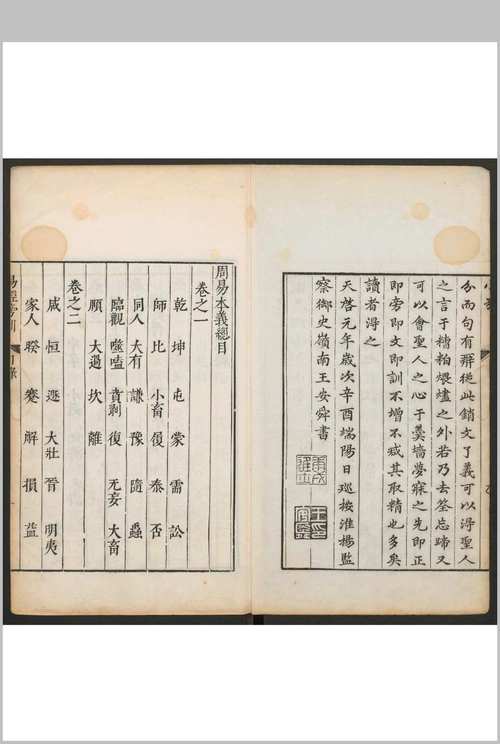 分而句有解從此銷文了義可以得聖人
之言于糟粕煨燼之外若乃去筌忘蹄又
可以會聖人之心于羹墻夢寐之先即正
即旁即文即訓不增不减其取精也多矣
讀者得之
天啓元年歲次辛酉端陽日巡按淮揚監
察御史嶺南王安舜書
周易本義總目
卷之一
乾 坤 屯 蒙 需 訟
師 比 小畜 履 泰 否
同人 大有 謙 豫 隨 蠱
臨觀 噬嗑 賁剥 復 无妄 大畜
頤 大過 坎 離
卷之二
咸 恒 遯 大壯 晉 明夷
家人 睽 蹇 解 損 益